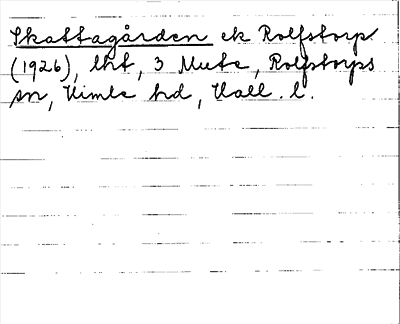 Skattagården ek Rolfstorp
(1926), lht, 3 Mute, Rolfstorps
sn, Himle hd, Hall. l.